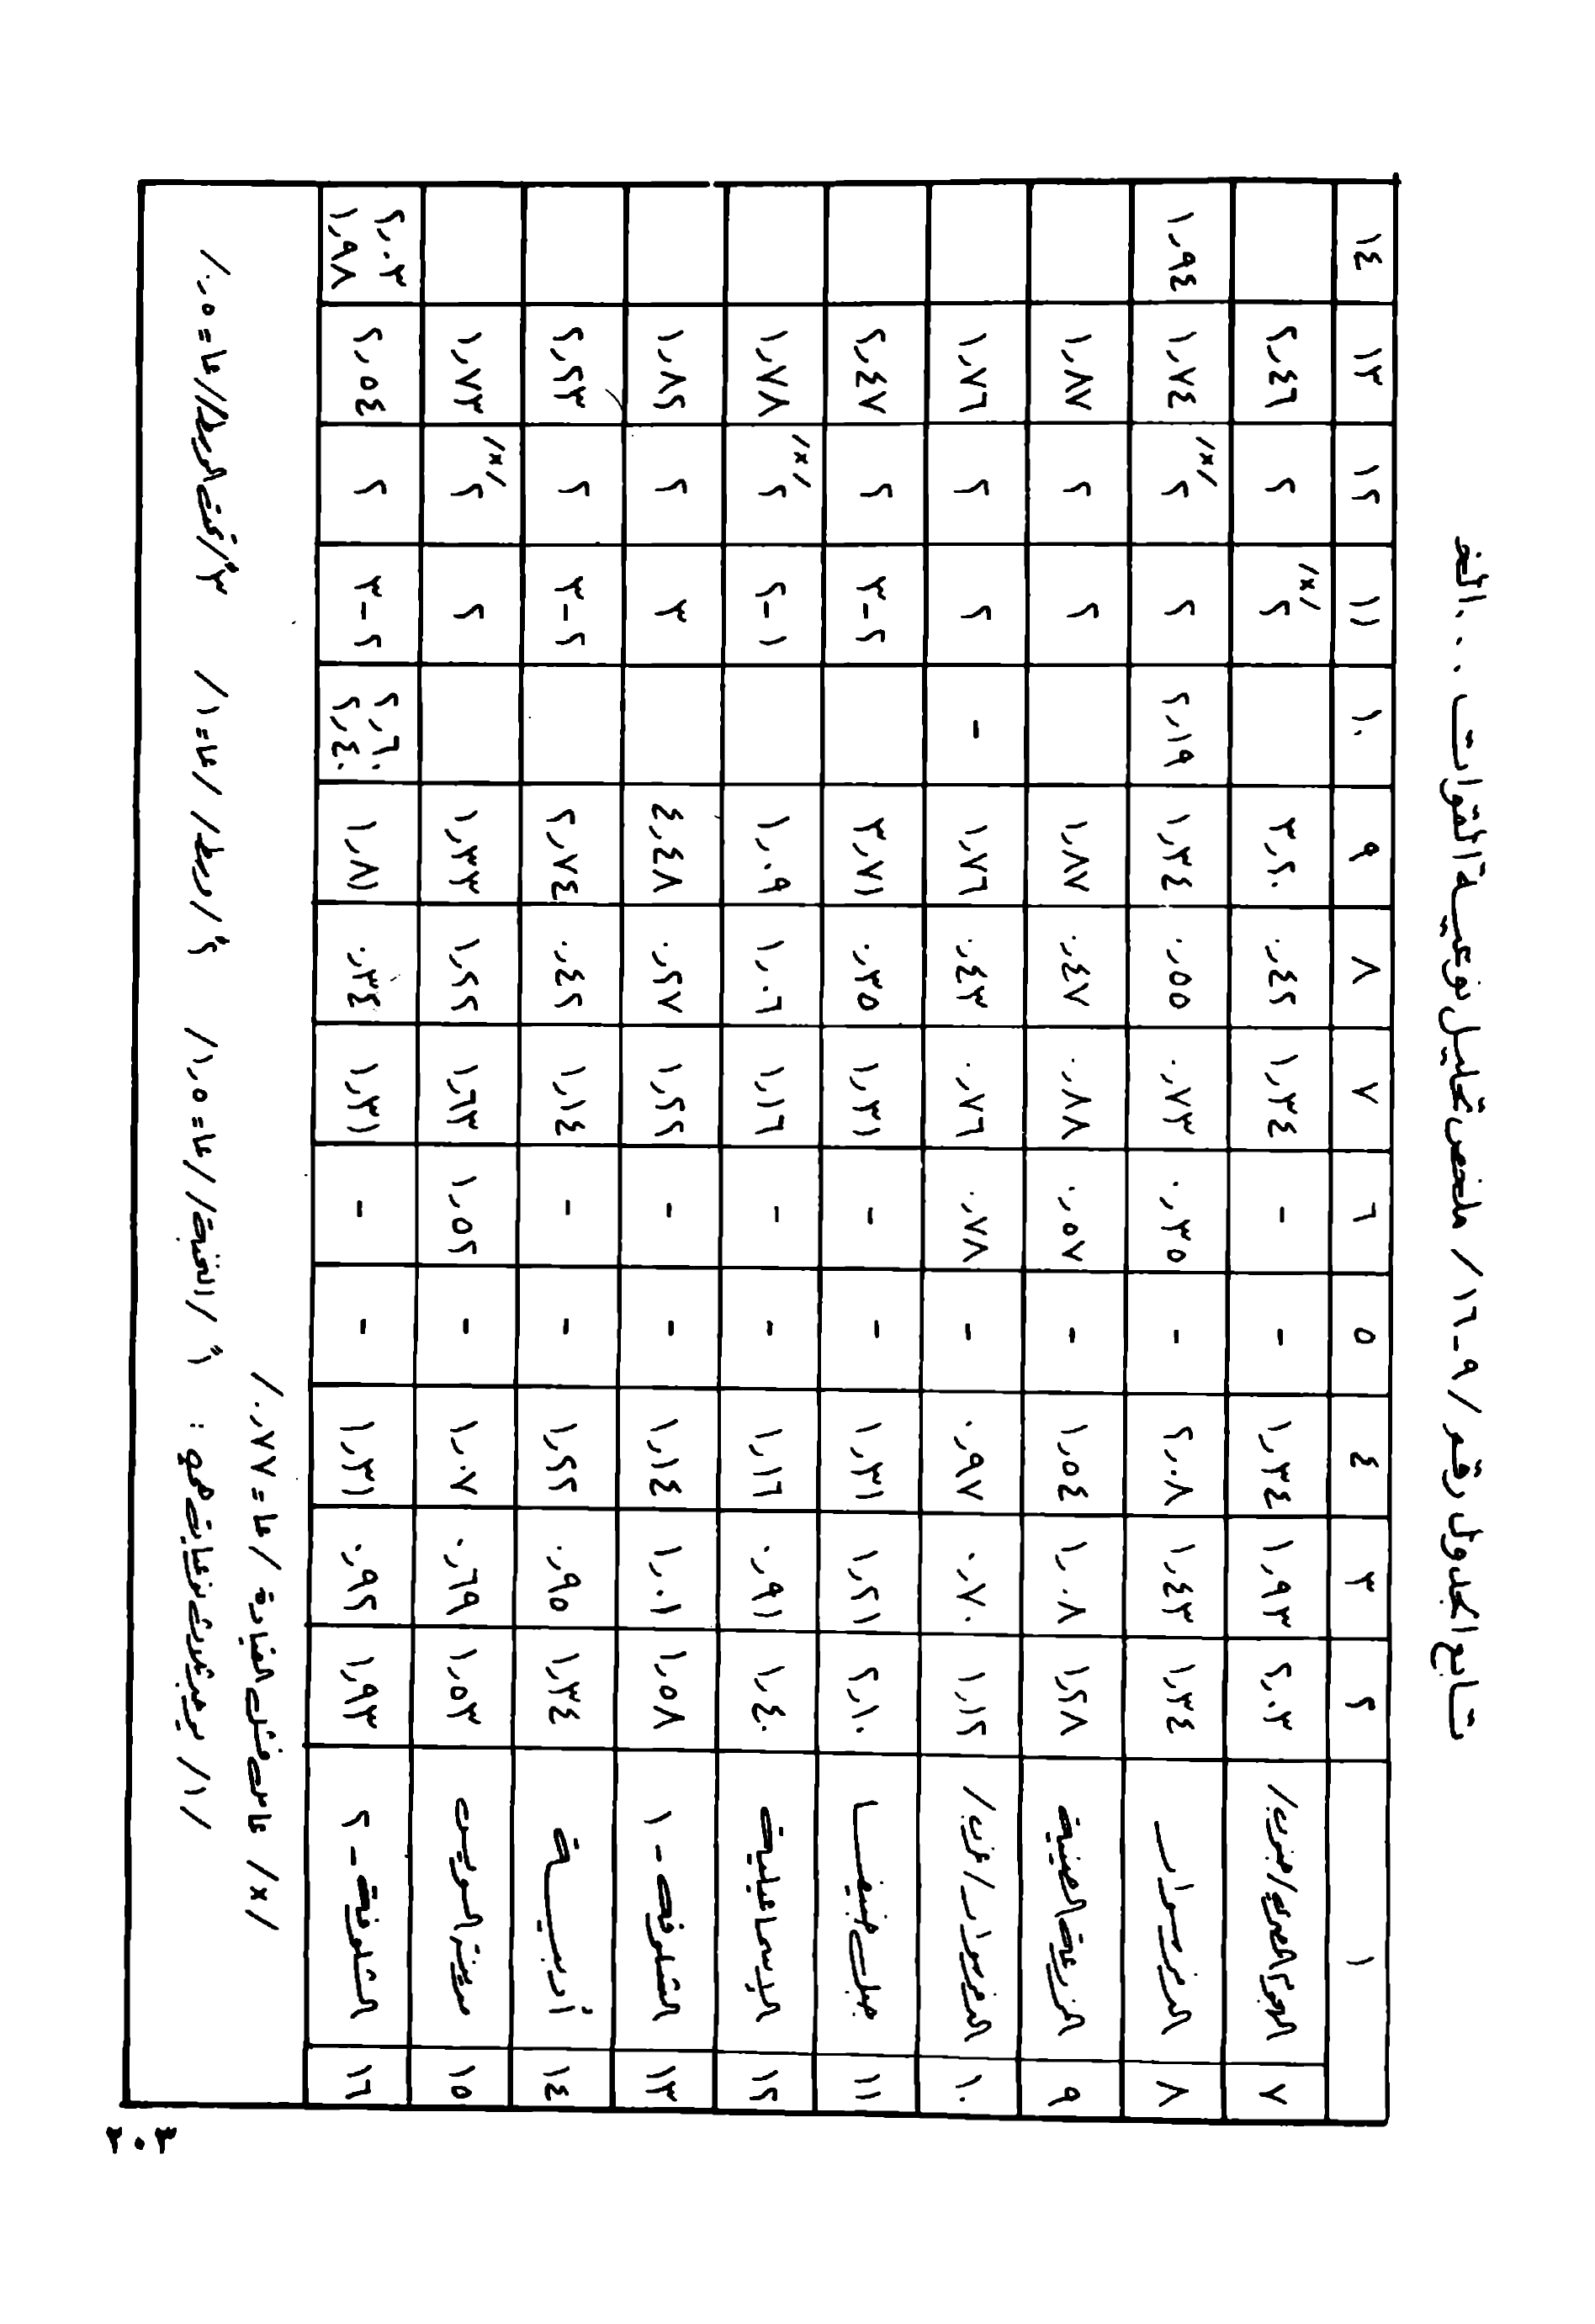 تابع الجدول رقم /٩-١٦/ ملخص تحليل نوعية القوات ...الخ
١ ٢ ٣ ٤ ٥ ٦ ٧ ٨ ٩ ١٠ ١١ ١٢ ١٣ ١٤
٧ الهجوم المصري /جنوب/ ٢,٠٣ ١,٩٣ ١,٣٤ - - ١,٣٤ ٠,٤٢ ٣,٢٠ ٢/x/ ٢ ٢,٤٦
٨ الدفرسوار ١,٣٤ ١,٤٣ ٢,٠٨ - ٠,٣٥ ٠,٧٣ ٠,٥٥ ١,٣٤ ٢,١٩ ٢ ٢/x/ ١,٧٤ ١,٩٤
٩ المزرعة الصينية ١,٢٨ ١,٠٨ ١,٥٤ - ٠,٥٧ ٠,٨٨ ٠,٤٧ ١,٨٧ ٢ ٢ ١,٨٧
١٠ الدفرسوار /غرب/ ١,١٢ ٠,٧٠ ٠,٩٧ - ٠,٧٨ ٠,٧٦ ٠,٤٣ ١,٧٦ - ٢ ٢ ١,٧٦
١١ جبل جنيفا ٢,١٠ ١,٢١ ١,٣١ - - ١,٣١ ٠,٣٥ ٣,٧١ ٢-٣ ٢ ٢,٤٧
١٢ الإسماعيلية ١,٤٠ ٠,٩١ ١,١٦ - - ١,١٦ ١,٠٦ ١,٠٩ ١-٢ ٢/x/ ١,٧٨
١٣ الشلوفة-١ ١,٥٨ ١,٠١ ١,١٤ - - ١,٢٢ ٠,٢٧ ٤,٤٨ ٣ ٢ ١,٨٢
١٤ أدبية ١,٣٤ ٠,٩٥ ١,٢٢ - - ١,١٤ ٠,٤٢ ٢,٧٤ ٢-٣ ٢ ٢,٢٣
١٥ مدينة السويس ١,٥٣ ٠,٦٩ ١,٠٧ - ١,٥٢ ١,٦٣ ١,٢٢ ١,٣٣ ٢ ٢/x/ ١,٧٣
١٦ الشلوفة-٢ ١,٩٣ ٠,٩٢ ١,٣١ - - ١,٣١ ٠,٣٤ ١,٨١ ٢,٦٠ ٢,٤٠ ٢-٣ ٢ ٢,٥٤ ٢,٠٣ ١,٩٨
/x/ عامل فشل القيادة /عا=٠,٧٧/
/١/ يوجد ثلاث نوعيات هي : ١ً/ النخبة/ /عا=١,٥/ ٢ً/ وسط/ /عا=١/ ٣ً/ تحت الوسط/ /عا=٠,٥/
٢٠٣